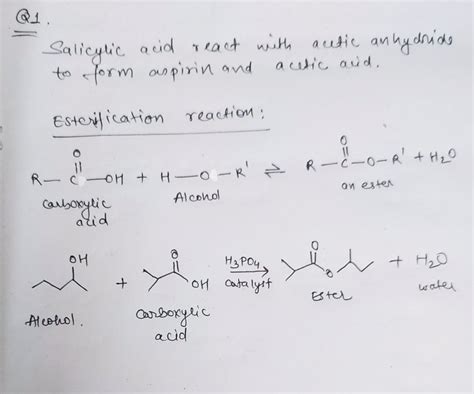 Q1.
Salicylic acid react with acetic anhydride
to form aspirin and acetic acid.
Esterification reaction:
O O
R — C — OH + H — O — R' ⇌ R — C — O — R' + H2O
Carboxylic acid Alcohol an ester
OH O O
+ OH H3PO4 catalyst O + H2O
Alcohol. Carboxylic acid Ester water